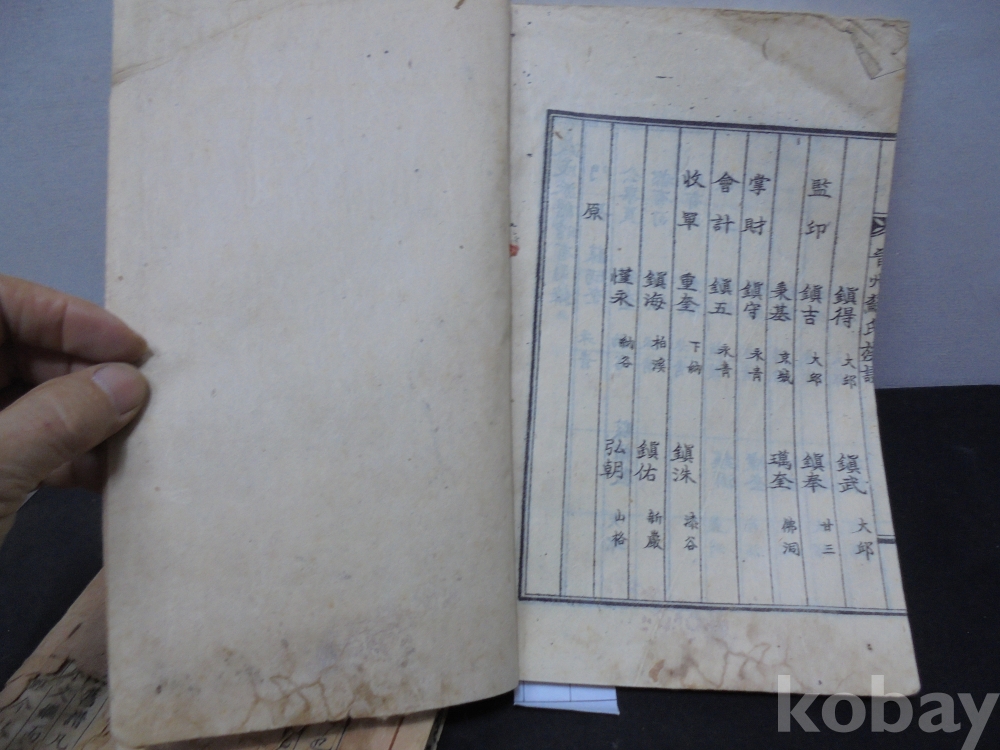 晉州氏族譜
鎭得 大邱 鎭武 大邱
監印 鎭吉 大邱 鎭奉 廿三
秉基 京城 奎 佛洞
掌財 鎭守 永青
會計 鎭五 永青
收單 重奎 鎭洙 漆谷
鎭海 柏溪 鎭佑 新巖
永 弘朝 山格
原
kobay